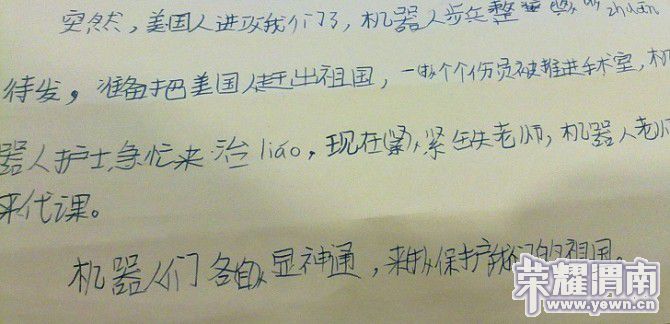 突然，美国人进攻我们了，机器人步兵整 zhuān
待发，准备把美国人赶出祖国，一个个伤员被推进手术室，机
器人护士急忙来治liáo，现在紧缺老师，机器人老师
来代课。
机器人们各自显神通，来保护我们的祖国。
荣耀渭南
www.yewn.cn